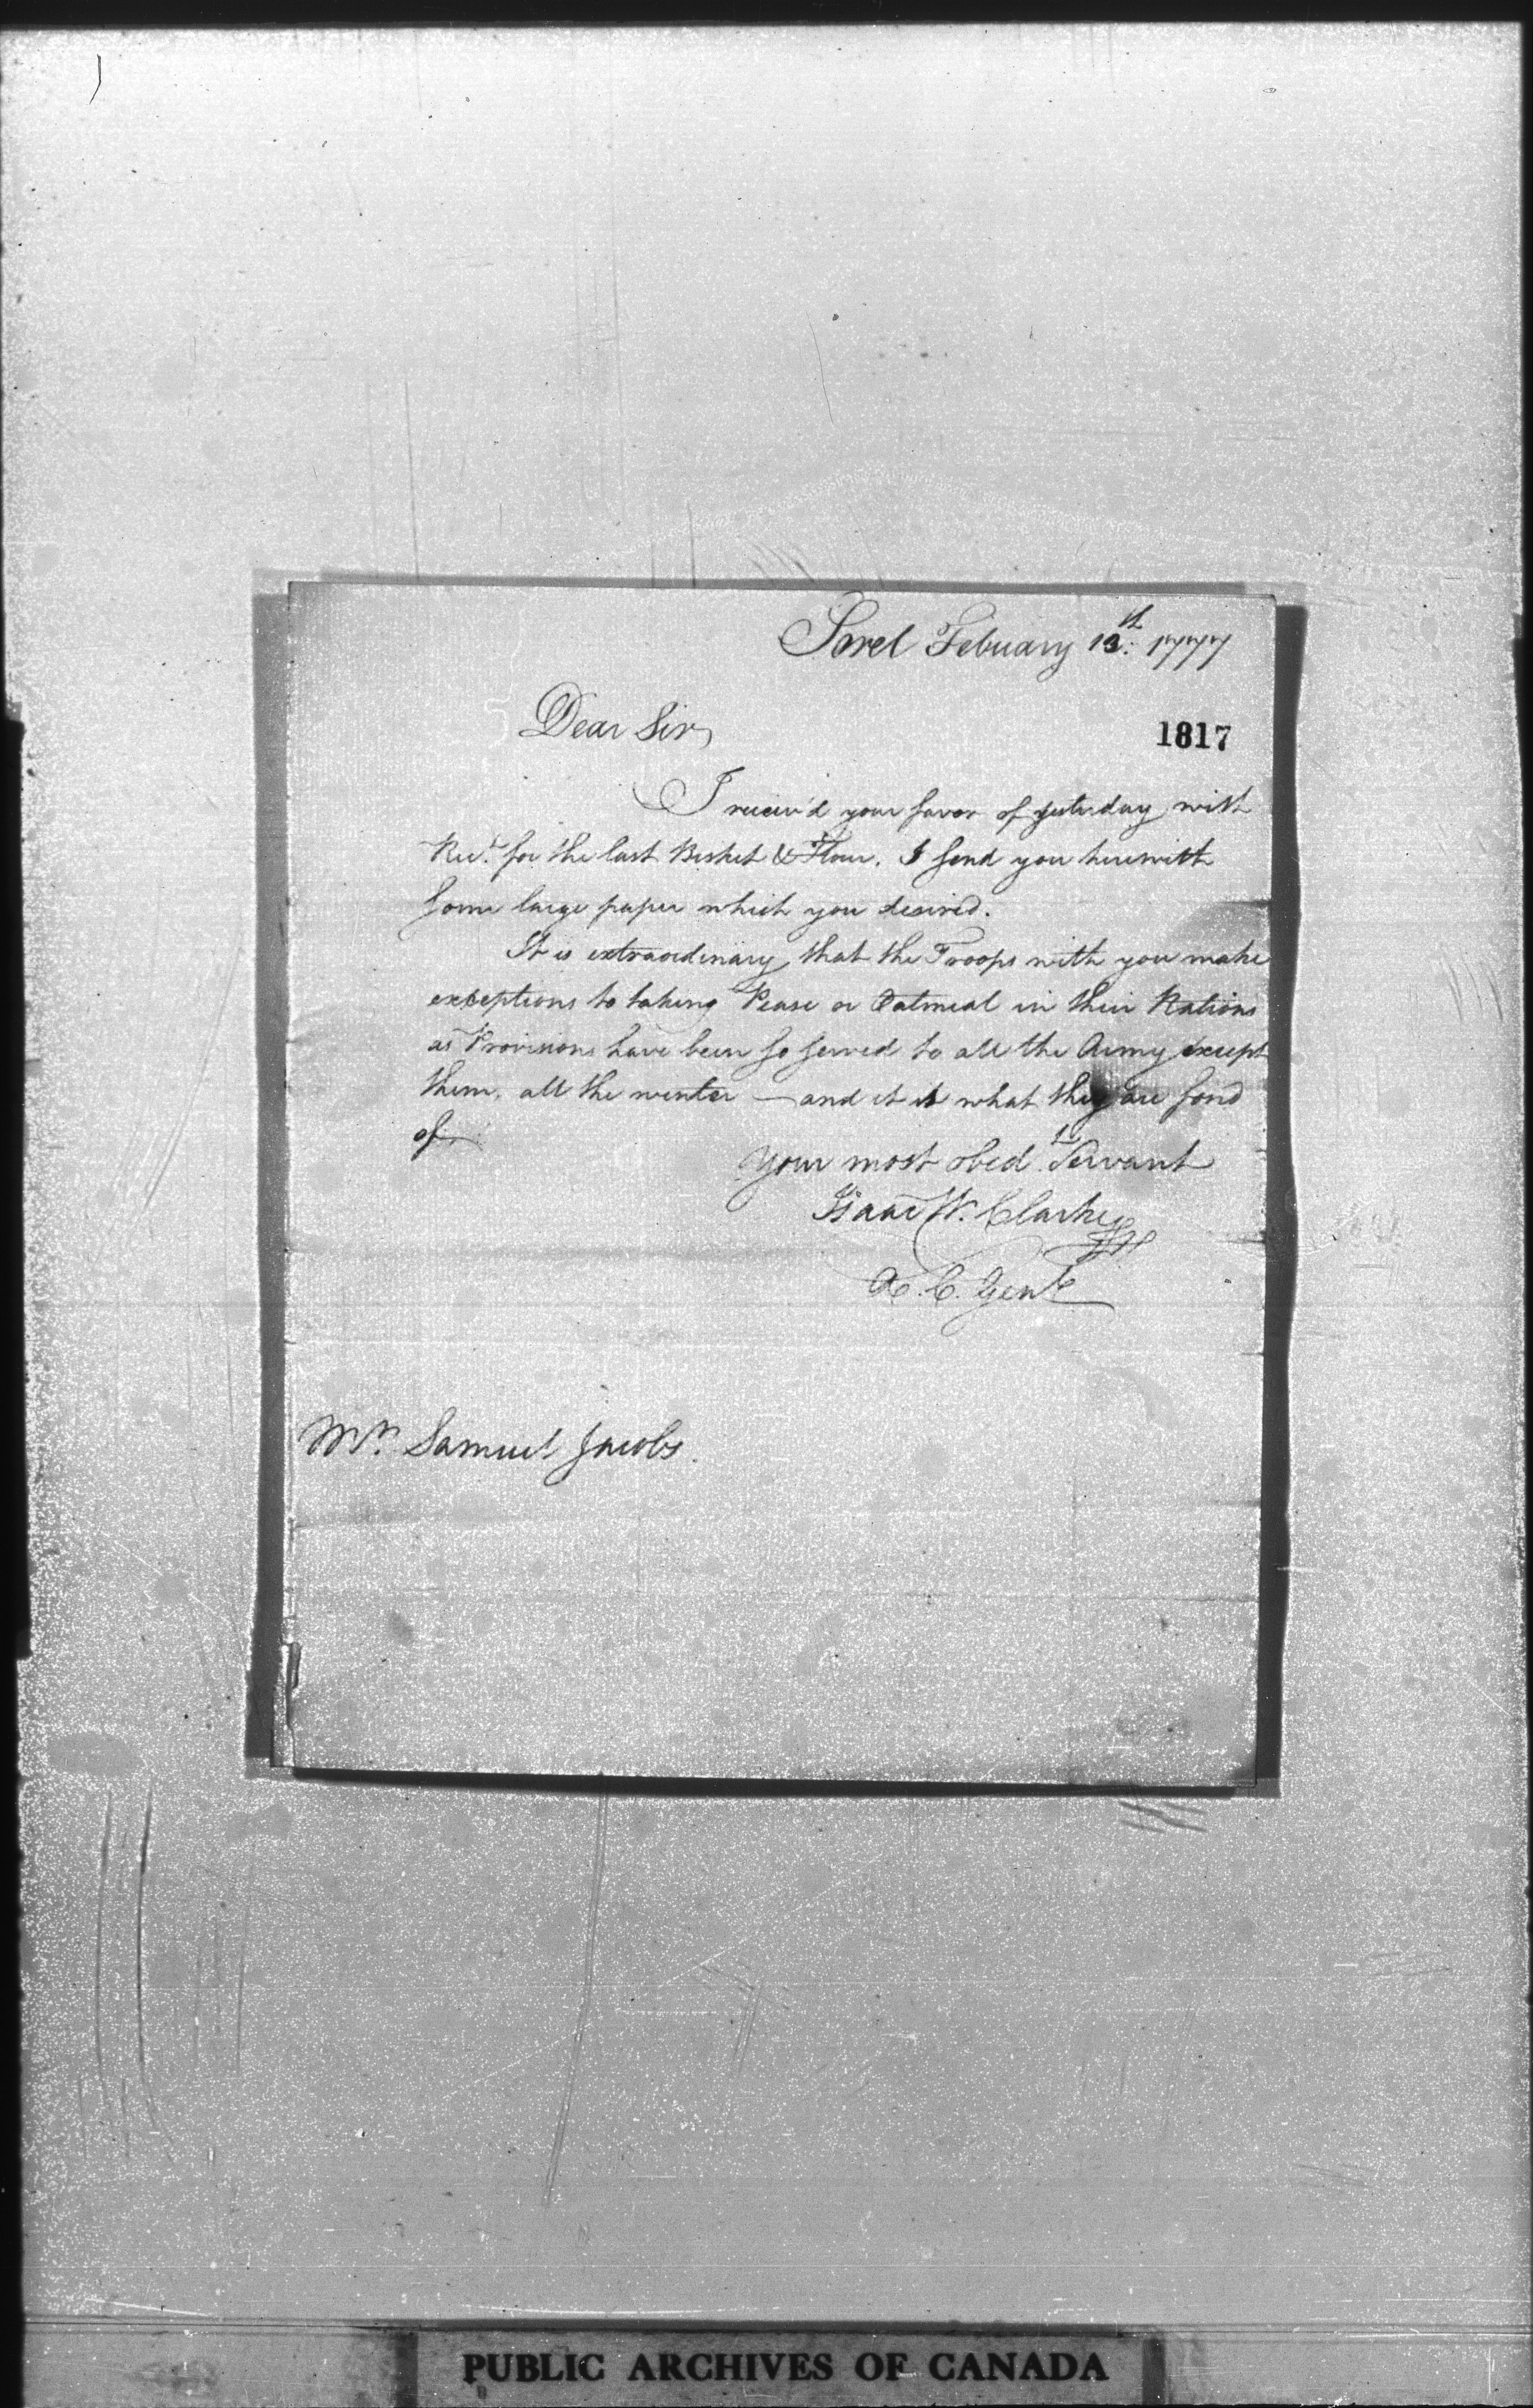 Sorel Febuary 13th. 1777
Dear Sir,
1817
I receiv'd your favor of yesterday with
Rect. for the last Bisket & Flour. I send you herewith
some large paper which you desired.
It is extraordinary that the Troops with you make
exceptions to taking Pease or Oatmeal in their Rations
as Provisions have been so served to all the Army except
them, all the winter — and it is what they are fond
of
Your most obedt. Servant
Isaac W. Clarke
A. C. Genl
Mr. Samuel Jacobs.
PUBLIC ARCHIVES OF CANADA